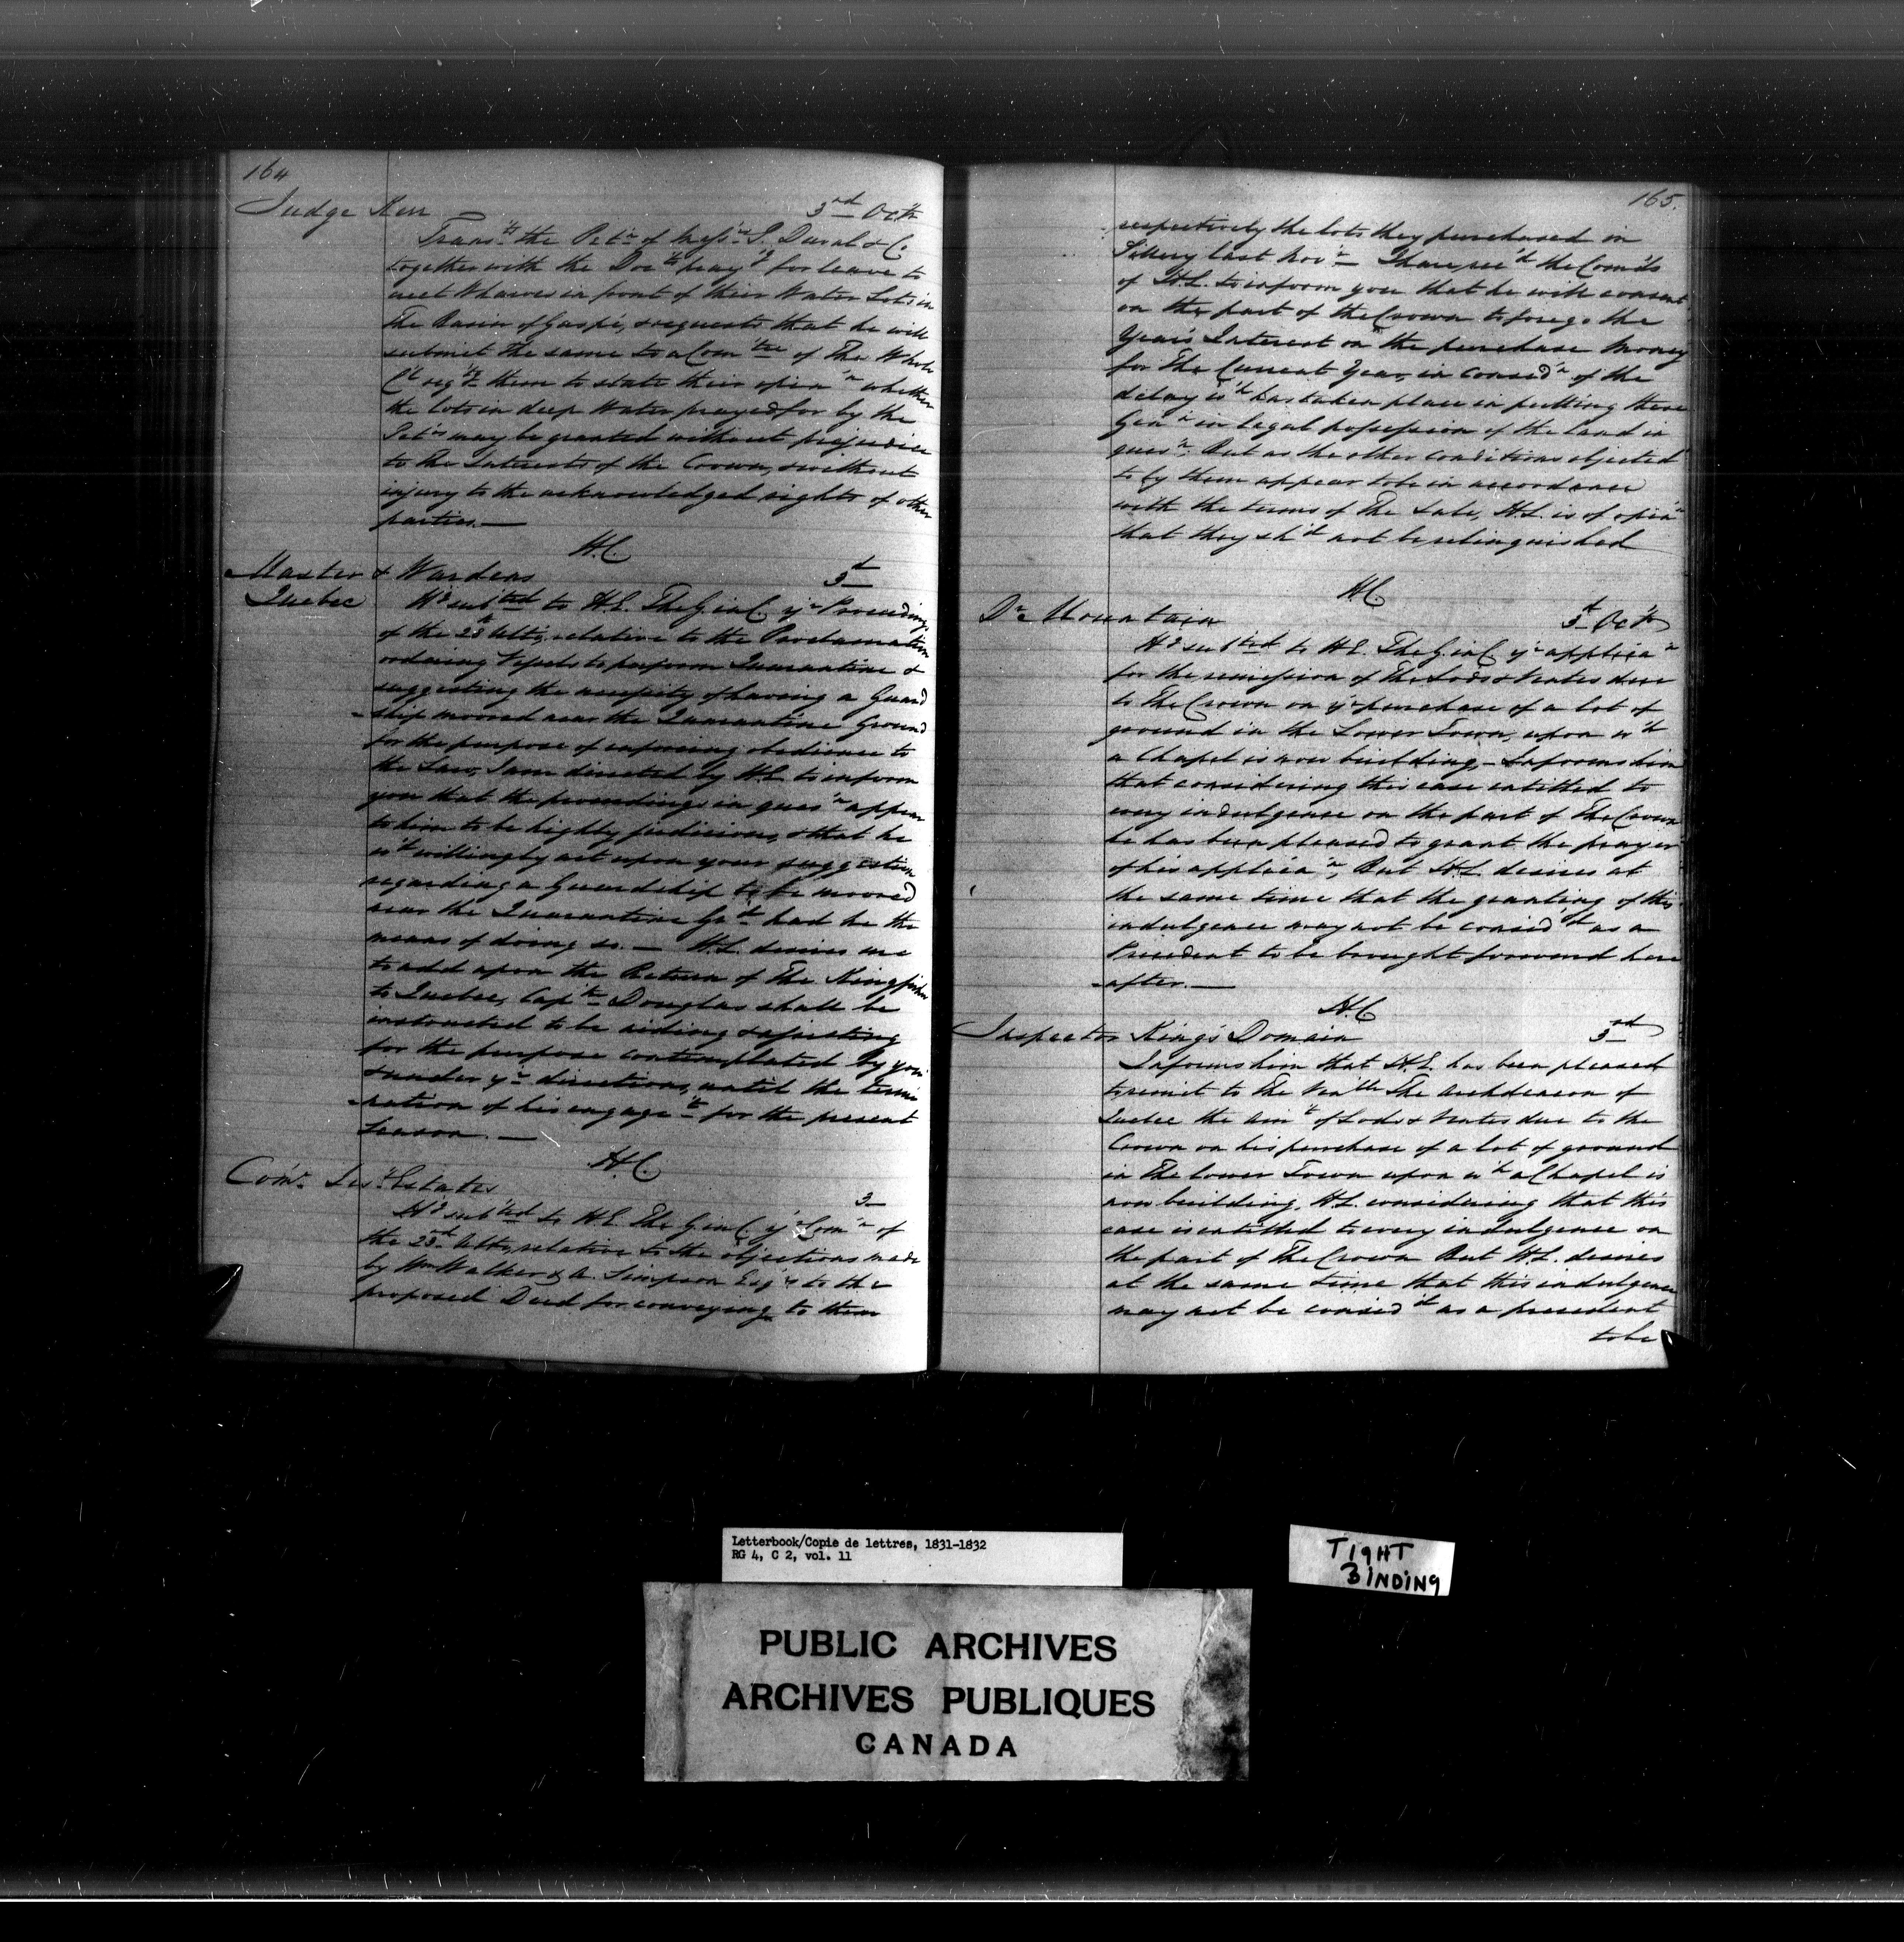 164
Judge Kerr 3rd Octr
Transts the Petn of Messrs P. Duval & Co
together with the Docts prayg for leave to
erect Wharves in front of their Water Lots in
the Basin of Gaspé, & requests that he will
submit the same to a Comtee of The Whole
Cl reqg them to state their opinn whether
the lots in deep Water prayed for by the
Petrs may be granted without prejudice
to the Interests of the Crown, & without
injury to the acknowledged rights of other
parties.—
H.C.
Master & Wardens 3d
Quebec
Hg subted to H.E. The G. in C. yr Proceedings
of the 28th Ulto, relative to the Proclamation
ordering Vessels to perform Quarantine &
suggesting the necessity of having a Guard
-ship moored near the Quarantine Ground
for the purpose of enforcing obedience to
the Law, I am directed by H.E. to inform
you that the proceedings in quesn appear
to him to be highly judicious, & that he
wd willingly act upon your suggestion
regarding a Guardship to be moored
near the Quarantine Grd had he the
means of doing so.— H.E. desires me
to add upon the Return of The Kingfisher
to Quebec, Captn Douglas shall be
instructed to be aiding & assisting
for the purpose contemplated by you
& under yr directions, until the termi
-nation of his engaget for the present
Season.—
H.C.
Comr Jests Estates 3—
Hg subted to H.E. The G in C. yr Comn of
the 23d Ulto, relative to the objections made
by Wm Walker & A. Simpson Esqrs to the
proposed Deed for conveying to them
165.
respectively the lots they purchased in
Sillery last Novr— I have recd the Comds
of H.E. to inform you that he will consent
on the part of the Crown to forego the
Year's Interest on the purchase Money
for The Current Year, in considn of the
delay wh has taken place in putting these
Genn in legal possession of the Land in
quesn. But as the other conditions objected
to by them appear to be in accordance
with the terms of The Sale, H.E. is of opinn
that they shd not be relinquished
H.C.
Dr Mountain 3d Octr
Hg subted to H.E. The G. in C. yr applican
for the remission of The Lods & Ventes due
to The Crown on yr purchase of a lot of
ground in the Lower Town, upon wh
a Chapel is now building,— Informs him
that considering this case entitled to
every indulgence on the part of The Crown
he has been pleased to grant the prayer
of his applican, But H.E. desires at
the same time that the granting of this
indulgence may not be considd as a
Precedent to be brought forward here
-after.—
H.C.
Inspector King's Domain 3rd
Informs him that H.E. has been pleased
to remit to The Venble The Archdeacon of
Quebec the Amt of Lods & Ventes due to the
Crown on his purchase of a lot of ground
in The Lower Town upon wh a Chapel is
now building, H.E. considering that this
case is entitled to every indulgence on
the part of The Crown But H.E. desires
at the same time that this indulgence
may not be considd as a precedent
to be
Letterbook/Copie de lettres, 1831-1832
RG 4, C 2, vol. 11
TIGHT
BINDING
PUBLIC ARCHIVES
ARCHIVES PUBLIQUES
CANADA